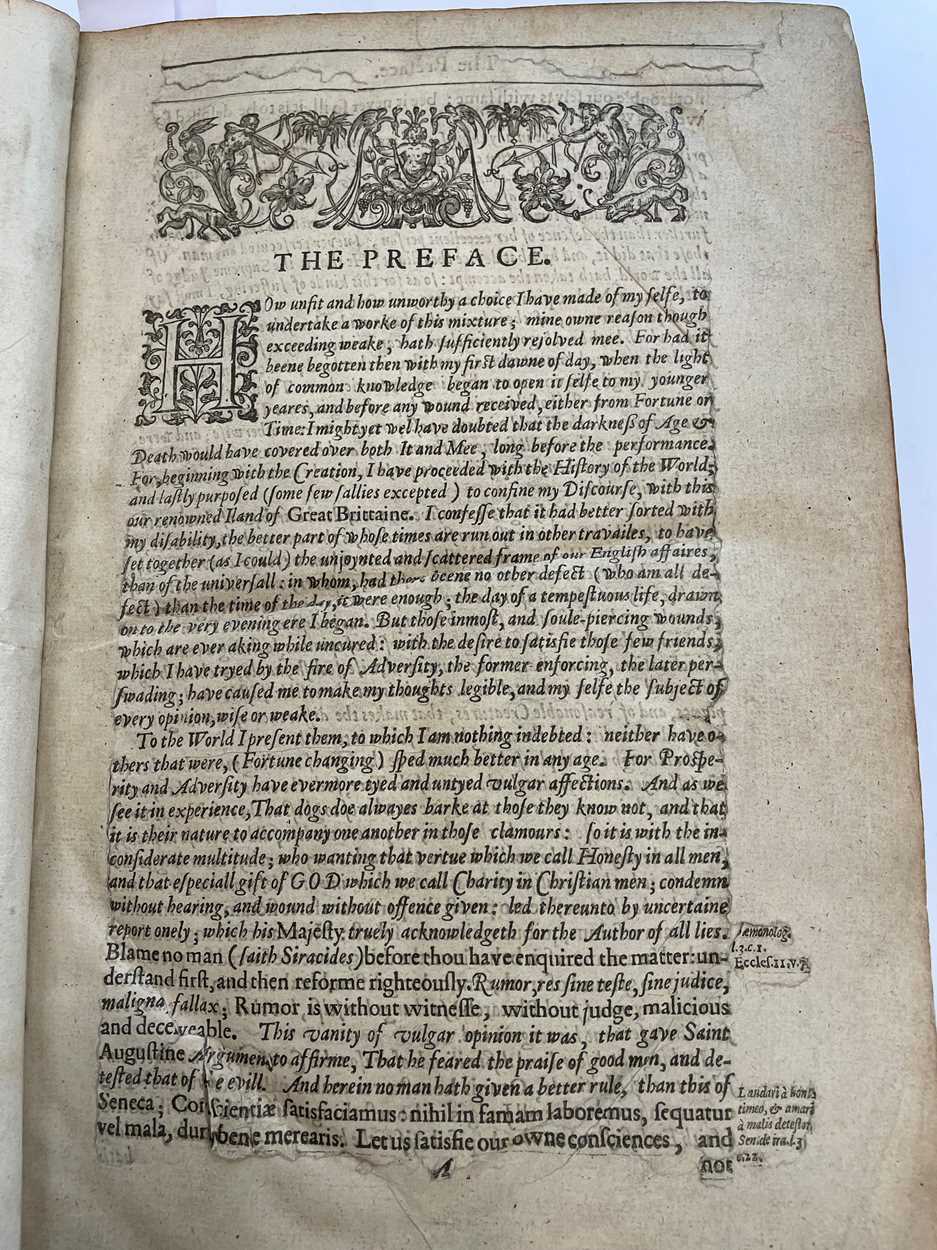 THE PREFACE.
HOw unfit and how unworthy a choice I have made of my ſelfe, to
undertake a worke of this mixture; mine owne reaſon though
exceeding weake, hath ſufficiently reſolved mee. For had it
beene begotten then with my firſt dawne of day, when the light
of common knowledge began to open it ſelfe to my younger
yeares, and before any wound received, either from Fortune or
Time: I might yet wel have doubted that the darkneſs of Age &
Death would have covered over both It and Mee, long before the performance.
For, beginning with the Creation, I have proceeded with the Hiſtory of the World;
and laſtly purpoſed (ſome few ſallies excepted) to confine my Diſcourſe, with this
our renowned Iland of Great Brittaine. I confeſſe that it had better ſorted with
my diſability, the better part of whoſe times are run out in other travailes, to have
ſet together (as I could) the unjoynted and ſcattered frame of our Engliſh affaires,
than of the univerſall: in whom, had there beene no other defect (who am all de-
fect) than the time of the day, it were enough; the day of a tempeſtuous life, drawn
on to the very evening ere I began. But thoſe inmoſt, and ſoule-piercing wounds,
which are ever aking while uncured: with the deſire to ſatisfie thoſe few friends,
which I have tryed by the fire of Adverſity, the former enforcing, the later per-
ſwading; have cauſed me to make my thoughts legible, and my ſelfe the ſubject of
every opinion, wiſe or weake.
To the World I preſent them, to which I am nothing indebted: neither have o-
thers that were, (Fortune changing) ſped much better in any age. For Proſpe-
rity and Adverſity have evermore tyed and untyed vulgar affections. And as we
ſee it in experience, That dogs doe alwayes barke at thoſe they know not, and that
it is their nature to accompany one another in thoſe clamours: ſo it is with the in-
conſiderate multitude; who wanting that vertue which we call Honeſty in all men,
and that eſpeciall gift of GOD which we call Charity in Chriſtian men; condemn
without hearing, and wound without offence given: led thereunto by uncertaine
report onely; which his Majeſty truely acknowledgeth for the Author of all lies.
Blame no man (ſaith Siracides) before thou have enquired the matter: un-
derſtand firſt, and then reforme righteouſly. Rumor, res ſine teſte, ſine judice,
maligna fallax; Rumor is without witneſſe, without judge, malicious
and deceveable. This vanity of vulgar opinion it was, that gave Saint
Auguſtine Argument to affirme, That he feared the praiſe of good men, and de-
teſted that of e evill. And herein no man hath given a better rule, than this of
Seneca; Conſcientiæ ſatisfaciamus: nihil in famam laboremus, ſequatur
vel mala, dum bene merearis. Let us ſatisfie our owne conſciences, and
not
A
Dæmonolog.
l.2.c.1.
Eccleſ.11.v.7.
Laudari à bonis
timeo, & amari
à malis deteſtor.
Sen. de ira. l.3
c.22.